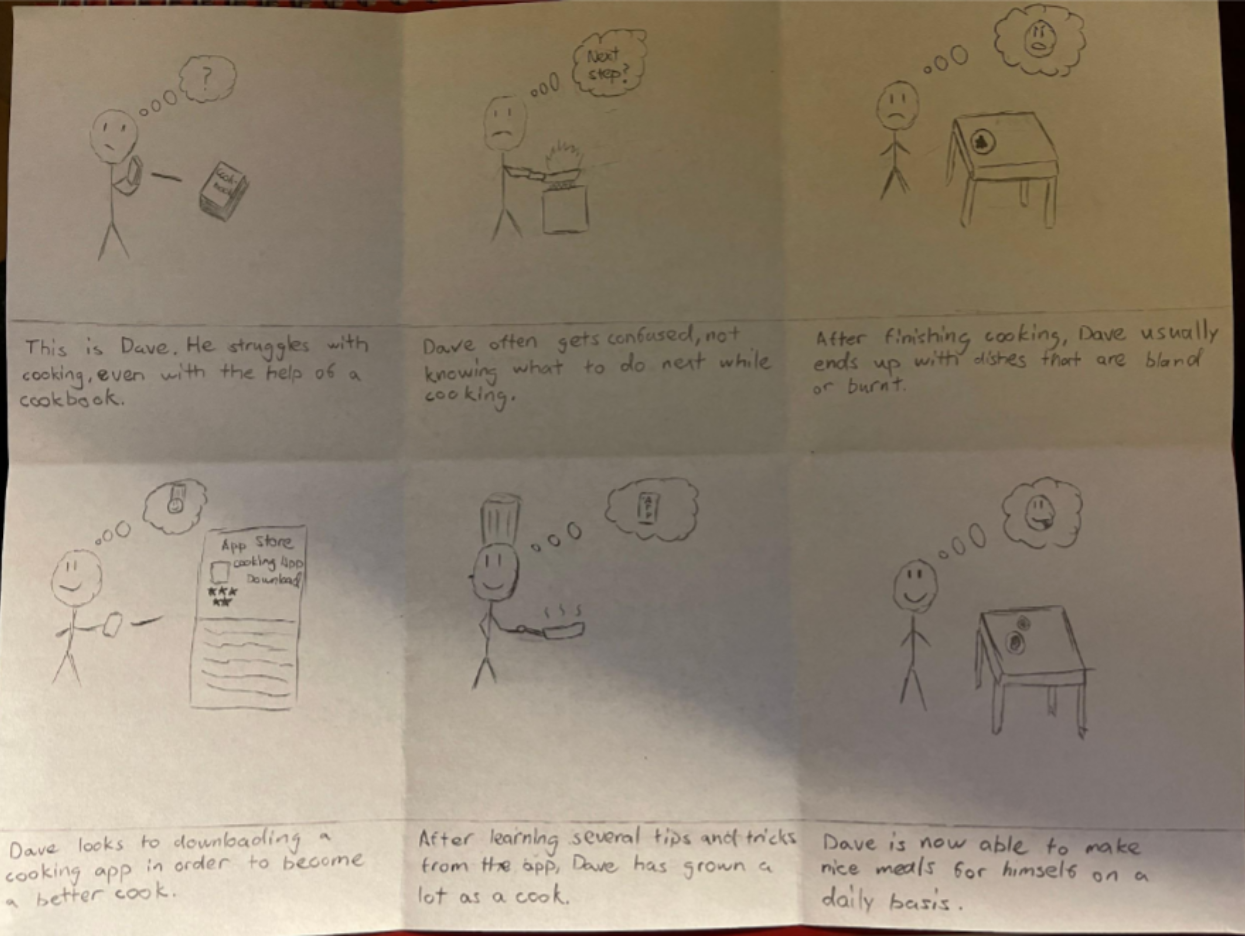 ?
Cook
book
This is Dave. He struggles with
cooking, even with the help of a
cookbook.
Next
step?
Dave often gets confused, not
knowing what to do next while
cooking.
After finishing cooking, Dave usually
ends up with dishes that are bland
or burnt.
App Store
cooking App
Download
Dave looks to downloading a
cooking app in order to become
a better cook.
APP
After learning several tips and tricks
from the app, Dave has grown a
lot as a cook.
Dave is now able to make
nice meals for himself on a
daily basis.